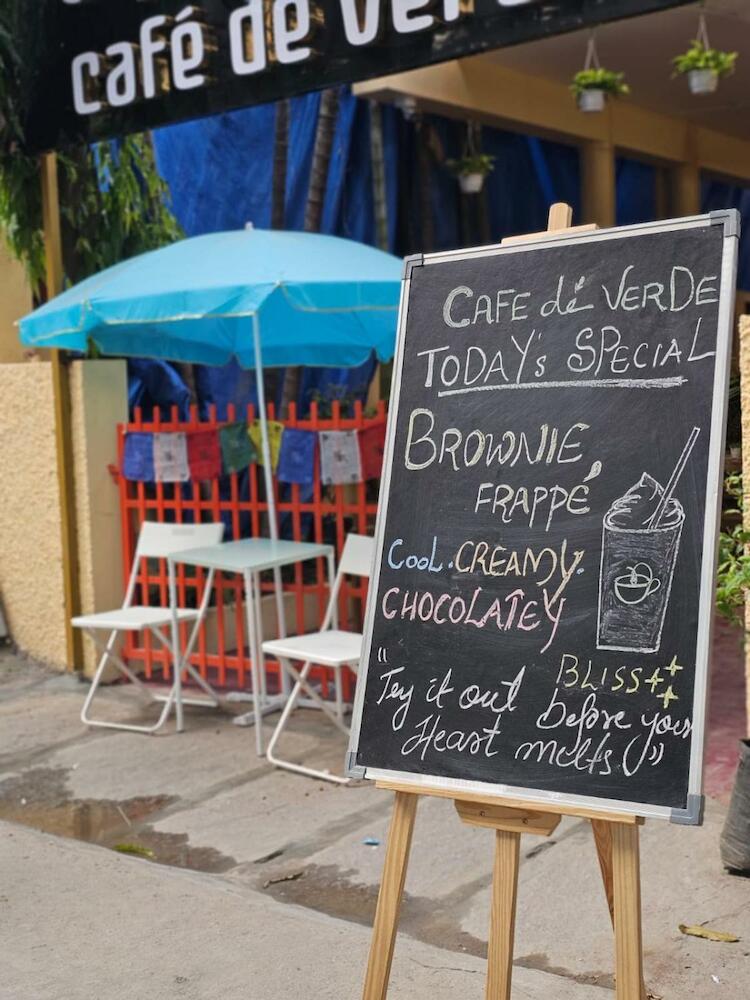 café de verde
CAFE dé VERDE
TODAY's SPECIAL
BROWNIE
FRAPPÉ
COOL.CREAMY.
CHOCOLATEY
BLISS
"Try it out before your
Heart melts."